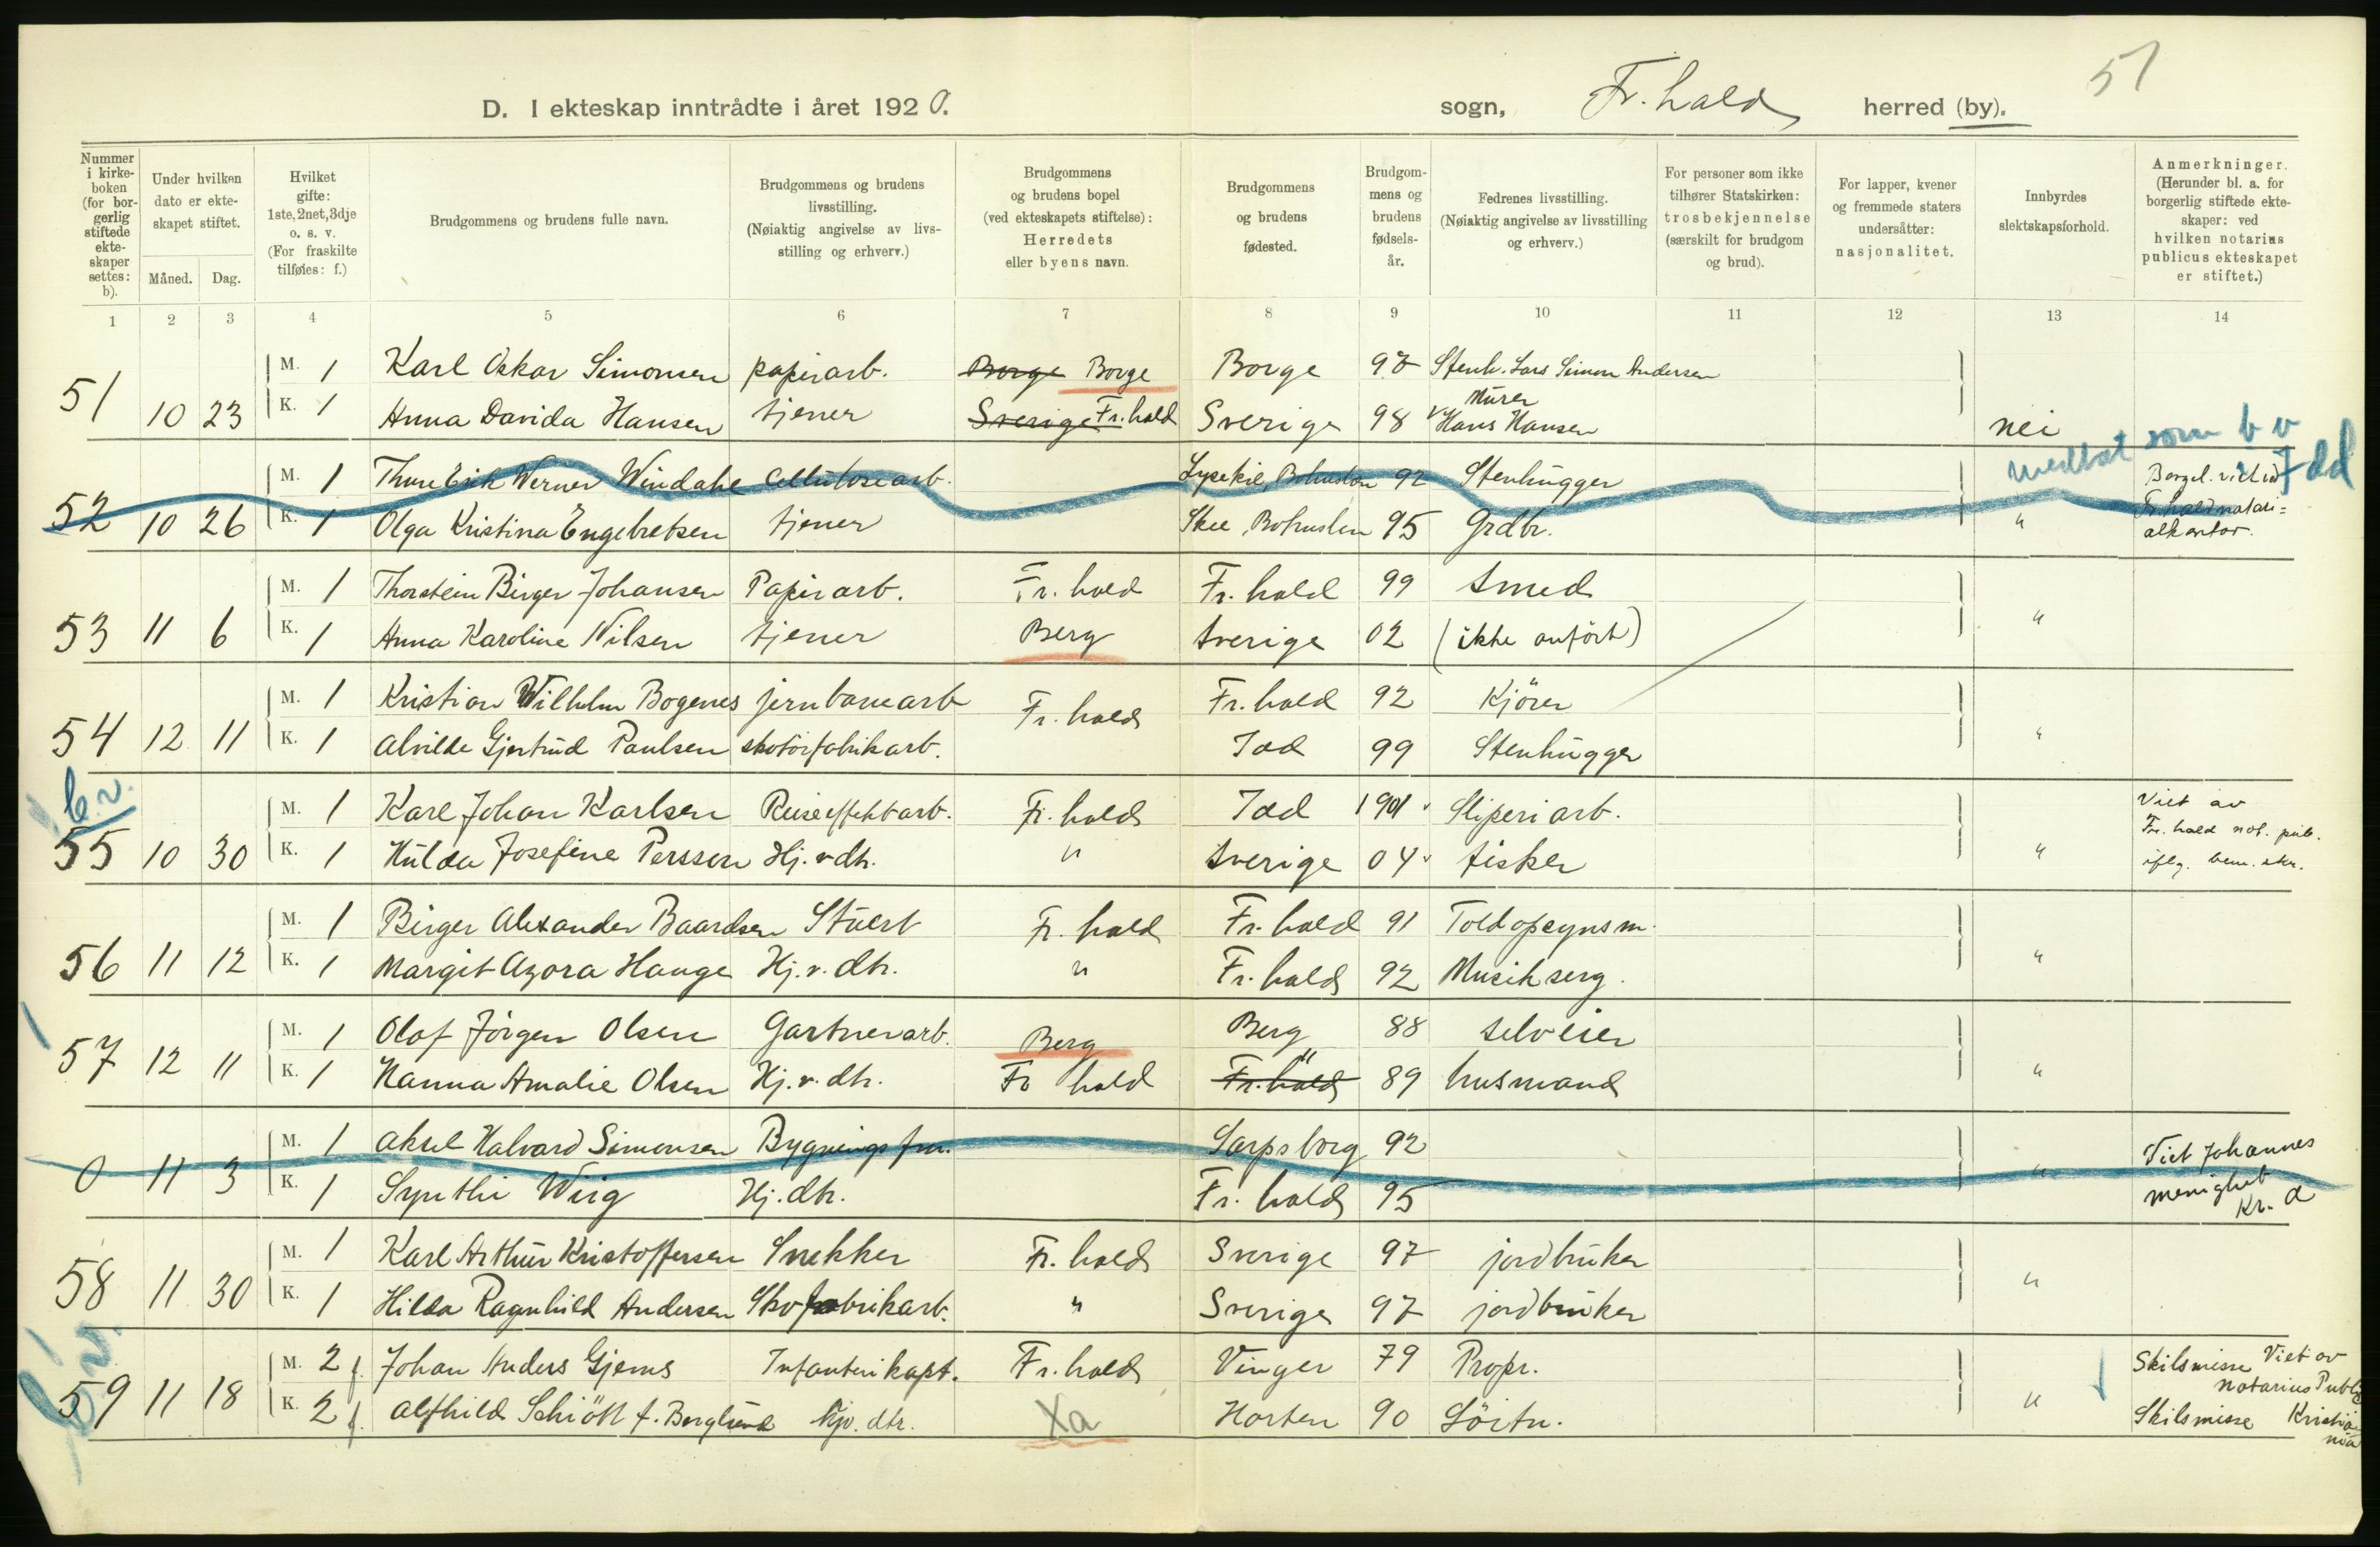 51
D. I ekteskap inntrådte i året 1920. sogn, Fr.hald herred (by).
Nummer i kirkeboken (for borgerlig stiftede ekteskaper settes: b).
Under hvilken dato er ekteskapet stiftet.
Måned. Dag.
Hvilket gifte: 1ste, 2net, 3dje o. s. v. (For fraskilte tilføies: f.)
Brudgommens og brudens fulle navn.
Brudgommens og brudens livsstilling. (Nøiaktig angivelse av livsstilling og erhverv.)
Brudgommens og brudens bopel (ved ekteskapets stiftelse): Herredets eller byens navn.
Brudgommens og brudens fødested.
Brudgommens og brudens fødselsår.
Fedrenes livsstilling. (Nøiaktig angivelse av livsstilling og erhverv.)
For personer som ikke tilhører Statskirken: trosbekjennelse (særskilt for brudgom og brud).
For lapper, kvener og fremmede staters undersåtter: nasjonalitet.
Innbyrdes slektskapsforhold.
Anmerkninger. (Herunder bl. a. for borgerlig stiftede ekteskaper: ved hvilken notarius publicus ekteskapet er stiftet.)
1 2 3 4 5 6 7 8 9 10 11 12 13 14
M. 1 Karl Oskar Simonsen papirarb. Borge Borge Borge 97 Stenh. Lars Simon Andersen
51 10 23 K. 1 Anna Davida Hansen tjener Sverige Fr.hald Sverige 98 Murer Hans Hansen nei
medtat som b v Idd
M. 1 Thure Erik Werner Windahl Cellulosearb. Lysekil, Bohuslen 92 Stenhugger
52 10 26 K. 1 Olga Kristina Engebretsen tjener Skee, Bohuslen 95 Grdbr. " Fr.hald notarialkontor.
M. 1 Thorstein Birger Johansen Papirarb. Fr. hald Fr. hald 99 Smed
53 11 6 K. 1 Anna Karoline Nilsen tjener Berg Sverige 02 (ikke anført) "
M. 1 Kristian Wilhelm Bogenes jernbanearb Fr. hald Fr. hald 92 Kjører
54 12 11 K. 1 Alvilde Gjertrud Paulsen skotøifabrikarb. Idd 99 Stenhugger "
b.v.
M. 1 Karl Johan Karlsen Reiseeffektarb. Fr. hald Idd 1901 Sliperiarb. Viet av
Fr. hald not. pub.
55 10 30 K. 1 Hulda Josefine Persson Hj.v.dtr. " Sverige 04 fisker " iflg. bem. skr.
M. 1 Birger Alexander Baardsen Stuert Fr. hald Fr. hald 91 Toldopsynsm.
56 11 12 K. 1 Margit Azora Hauge Hj.v.dtr. " Fr. hald 92 Musikserg. "
M. 1 Olaf Jörgen Olsen Gartnerarb. Berg Berg 88 Selveier
57 12 11 K. 1 Hanna Amalie Olsen Hj.v.dtr. Fr hald Fr. hald " 89 husmand "
M. 1 Aksel Halvard Simonsen Bygningsfm. Sarpsborg 92 Viet Johannes
0 11 3 K. 1 Synthi Wiig Hj.dtr. Fr. hald 95 " menighet
Kr. a
M. 1 Karl Arthur Kristoffersen Snekker Fr. hald Sverige 97 jordbruker
58 11 30 K. 1 Hilda Ragnhild Andersen Skofabrikarb. " Sverige 97 jordbruker "
b.v.
M. 2 f. Johan Anders Gjems Infanterikapt. Fr. hald Vinger 79 Propr. Skilsmisse Viet av
notarius Public
59 11 18 K. 2 f. Alfhild Schiött f. Berglund Hjv. dtr. Xa Horten 90 Löitn. " Skilsmisse Kristiania